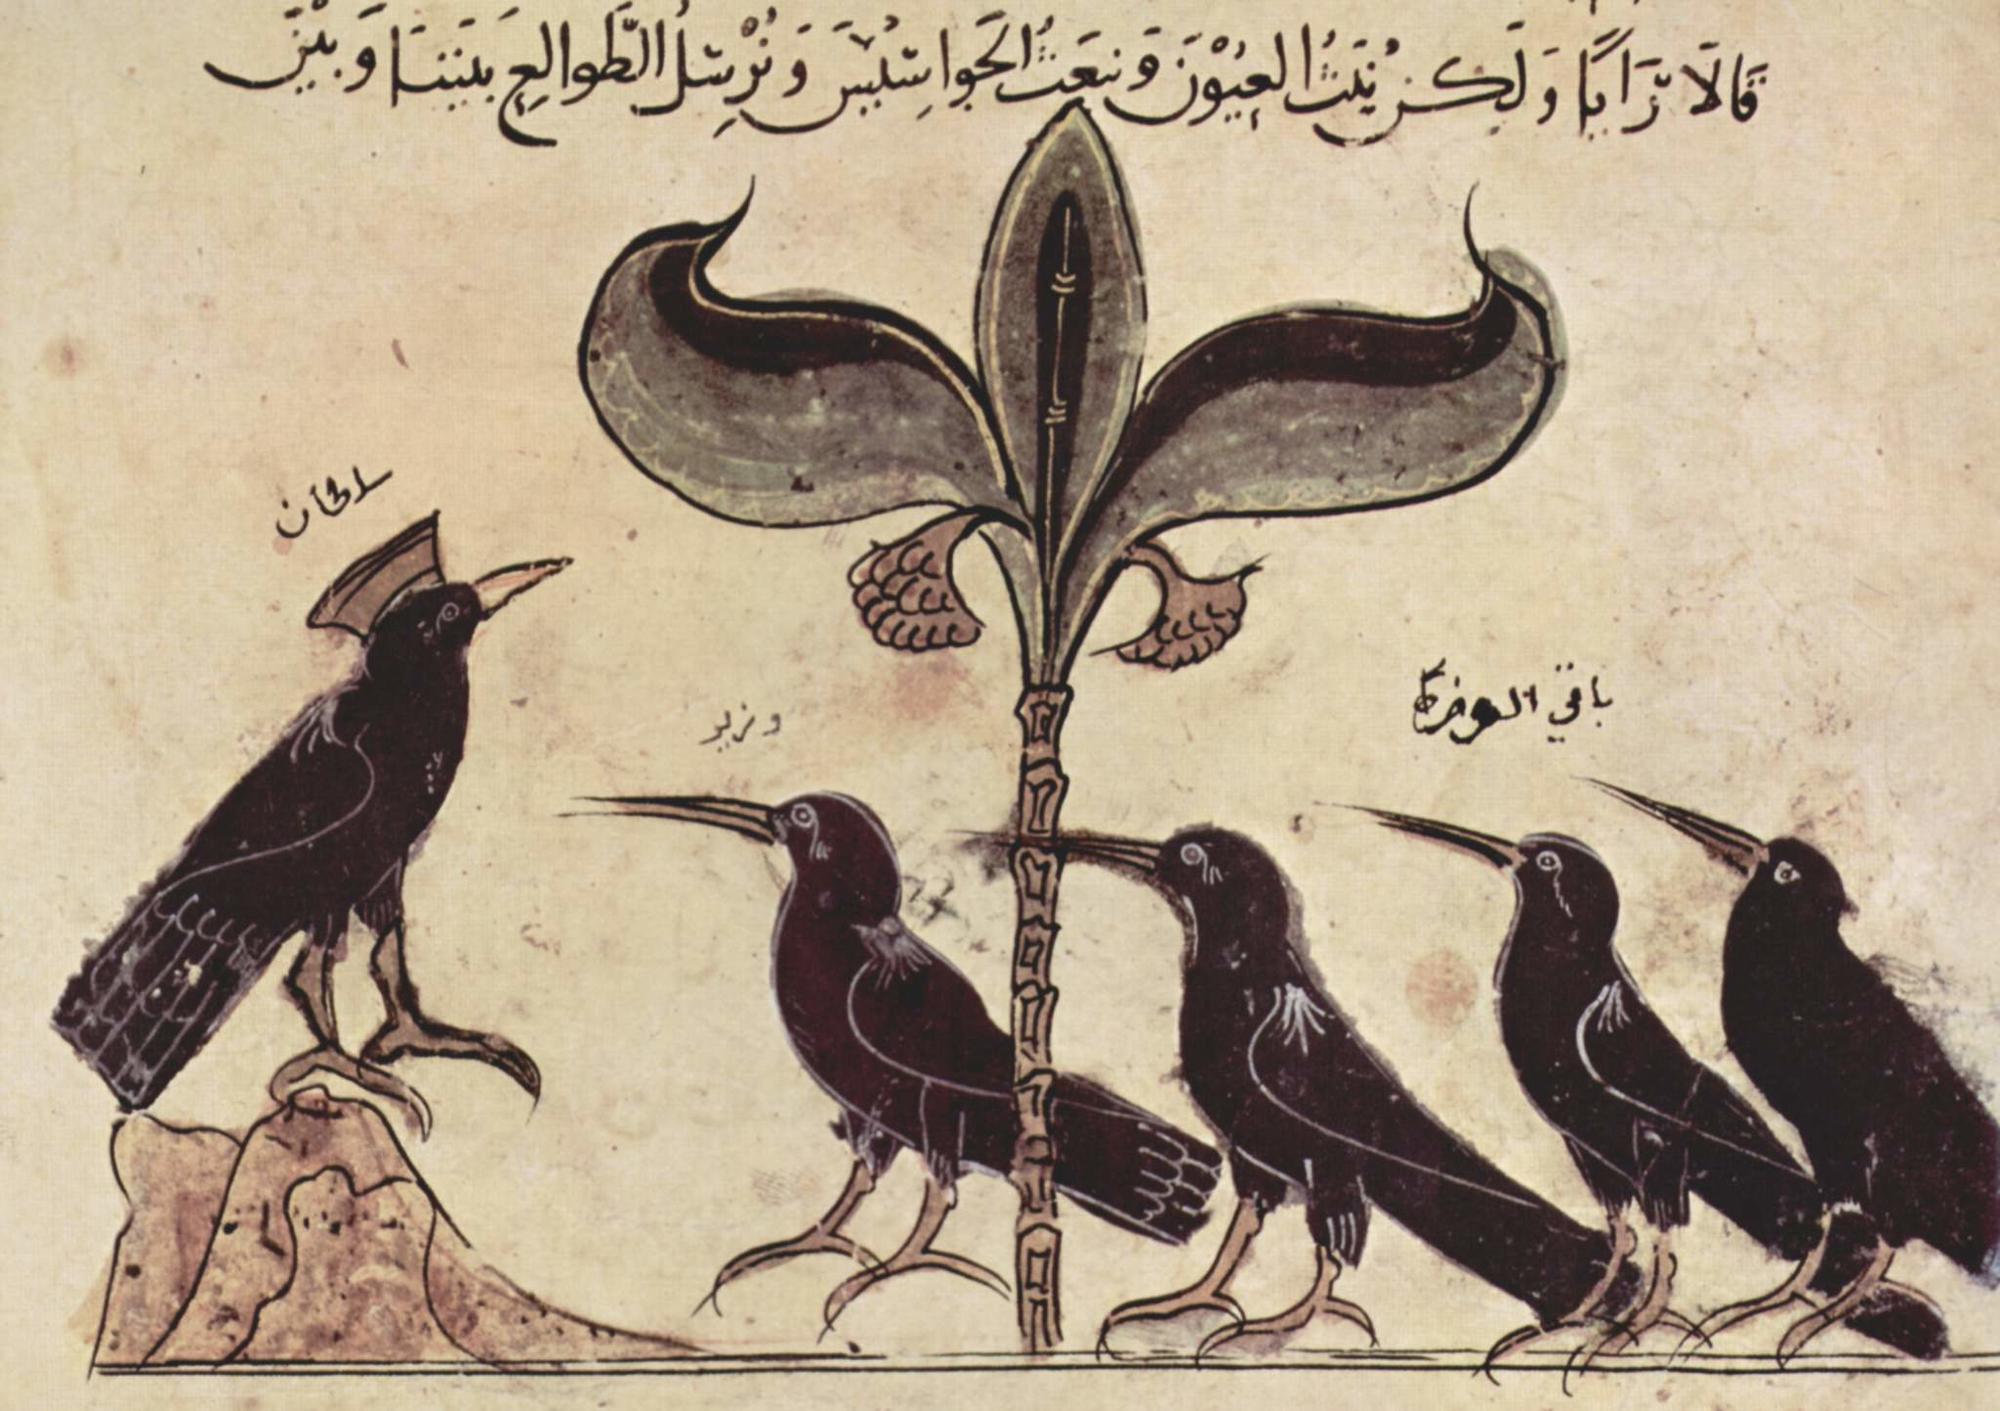 قَالَا رَايًا وَلَكِن نَبُثُّ العُيُوْنَ وَنبعَثُ الجَواسِيْسَ وَنُرْسِلُ الطَّوالِعِ بَيْنَنَا وَبَيْنَ
سلطان
وزير
باقي